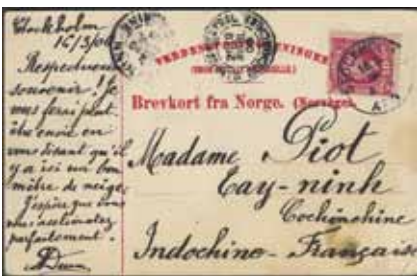 Stockholm
16/3/06
Respectueux
souvenir! Je
vous ferai peut
être envie en
vous disant qu'il
y a ici un bon
mètre de neige.
J'espère que vous
vous acclimatez
parfaitement.
VERDENSPOSTFORENINGEN
(UNION POSTALE UNIVERSELLE)
Brevkort fra Norge. (Norvège)
Madame Piot
Tay-ninh
Cochinchine
Indochine-Française